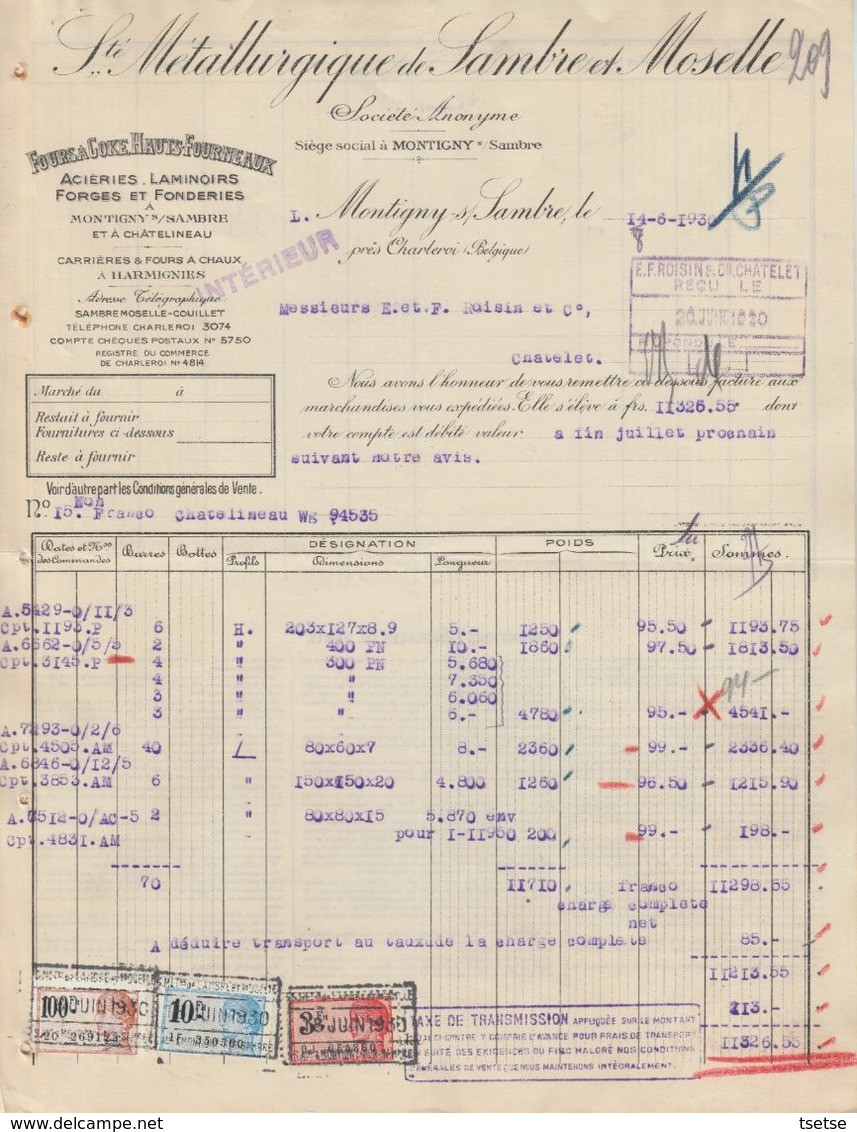 Sté Métallurgique de Sambre et Moselle
209
Société Anonyme
Siège social à MONTIGNY s/Sambre
FOURS À COKE, HAUTS-FOURNEAUX
ACIÉRIES, LAMINOIRS
FORGES ET FONDERIES
À
MONTIGNY S/SAMBRE
ET À CHÂTELINEAU
CARRIÈRES & FOURS À CHAUX
À HARMIGNIES
Adresse Télégraphique:
SAMBREMOSELLE-COUILLET
TÉLÉPHONE CHARLEROI 3074
COMPTE CHÈQUES POSTAUX N° 5750
REGISTRE DU COMMERCE
DE CHARLEROI N° 4814
INTÉRIEUR
L. Montigny-s/Sambre, le 14-6-1930
près Charleroi (Belgique)
E.F. ROISIN & Cie, CHATELET
REÇU LE
20 JUIN 1930
Messieurs E.et.F. Roisin et C°,
Chatelet.
Nous avons l'honneur de vous remettre ci-dessous facture aux
marchandises vous expédiées. Elle s'élève à frs. II326.55 dont
votre compte est débité valeur a fin juillet prochain
suivant notre avis.
Marché du à
Restait à fournir
Fournitures ci-dessous
Reste à fournir
Voir d'autre part les Conditions générales de Vente.
Noh
N°. I5. Franco Chatelineau Wg 94535
Dates et Nos des Commandes Barres Bottes Profils DÉSIGNATION Dimensions Longueur POIDS Prix Sommes
A.5429-0/II/3
Cpt.II93.P 6 H. 203xI27x8.9 5.- I250 95.50 II93.75
A.6562-0/5/5 2 " 400 PN I0.- I860 97.50 I8I3.50
Cpt.3I45.P 4 " 300 PN 5.680
4 " " 7.350
3 " " 6.060 94-
3 " " 5.- 4780 95.- 454I.-
A.7293-0/2/6
Cpt.4505.AM 40 L 80x60x7 8.- 2360 99.- 2336.40
A.6846-0/I2/5
Cpt.3853.AM 6 " I50xI50x20 4.800 I260 96.50 I2I5.90
A.75I2-0/AC-5 2 " 80x80xI5 5.870 env
Cpt.483I.AM pour I-II950 200 99.- I98.-
70 II7I0 franco II298.55
charge complete
net
A déduire transport au taux de la charge complete 85.-
II2I3.55
II3.-
II326.55
100 JUIN 1930
10 JUIN 1930
3 JUIN 1930
TAXE DE TRANSMISSION APPLIQUÉE SUR LE MONTANT
Y COMPRIS L'AVANCE POUR FRAIS DE TRANSPORT
SUITE DES EXIGENCES DU FISC MALGRÉ NOS CONDITIONS
GÉNÉRALES DE VENTE QUE NOUS MAINTENONS INTÉGRALEMENT.
tsetse